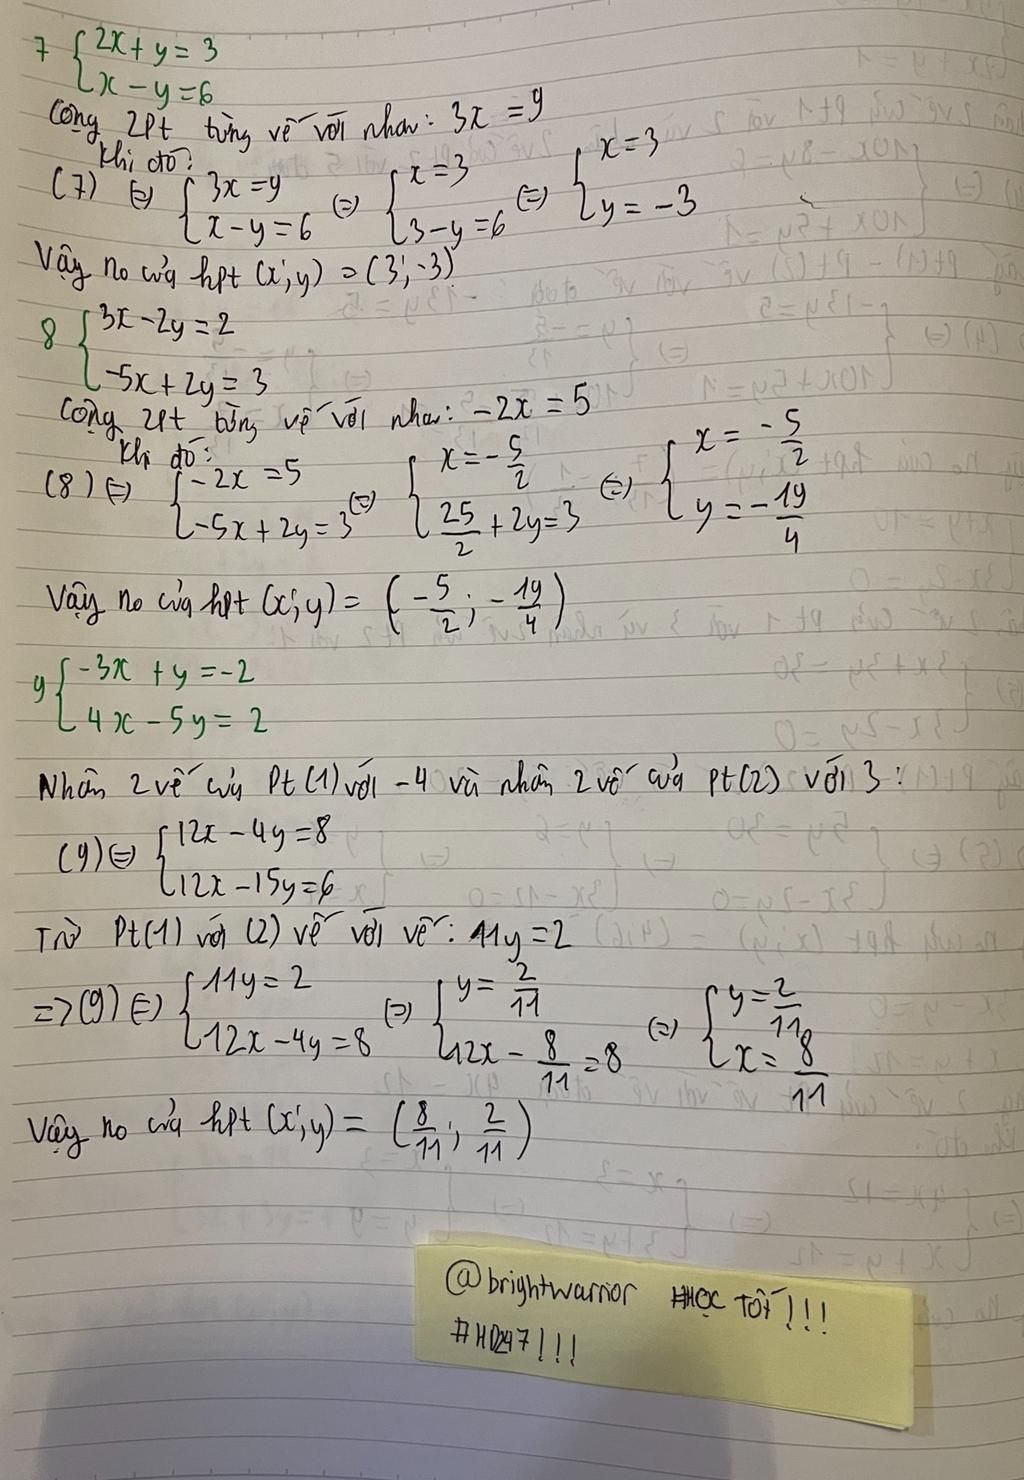 7 { 2x + y = 3
x - y = 6
Cộng 2pt từng vế với nhau: 3x = 9
Khi đó:
(7) ⇔ { 3x = 9 ; x - y = 6 ⇔ { x = 3 ; 3 - y = 6 ⇔ { x = 3 ; y = -3
Vậy no của hpt (x;y) = (3;-3)
8 { 3x - 2y = 2
-5x + 2y = 3
Cộng 2pt từng vế với nhau: -2x = 5
Khi đó:
(8) ⇔ { -2x = 5 ; -5x + 2y = 3 ⇔ { x = -5/2 ; 25/2 + 2y = 3 ⇔ { x = -5/2 ; y = -19/4
Vậy no của hpt (x;y) = (-5/2; -19/4)
9 { -3x + y = -2
4x - 5y = 2
Nhân 2 vế của Pt(1) với -4 và nhân 2 vế của pt(2) với 3:
(9) ⇔ { 12x - 4y = 8
12x - 15y = 6
Trừ Pt(1) với (2) vế với vế: 11y = 2
=> (9) ⇔ { 11y = 2 ; 12x - 4y = 8 ⇔ { y = 2/11 ; 12x - 8/11 = 8 ⇔ { y = 2/11 ; x = 8/11
Vậy no của hpt (x;y) = (8/11; 2/11)
@brightwarrior #HỌC TỐT!!!
#HD247!!!